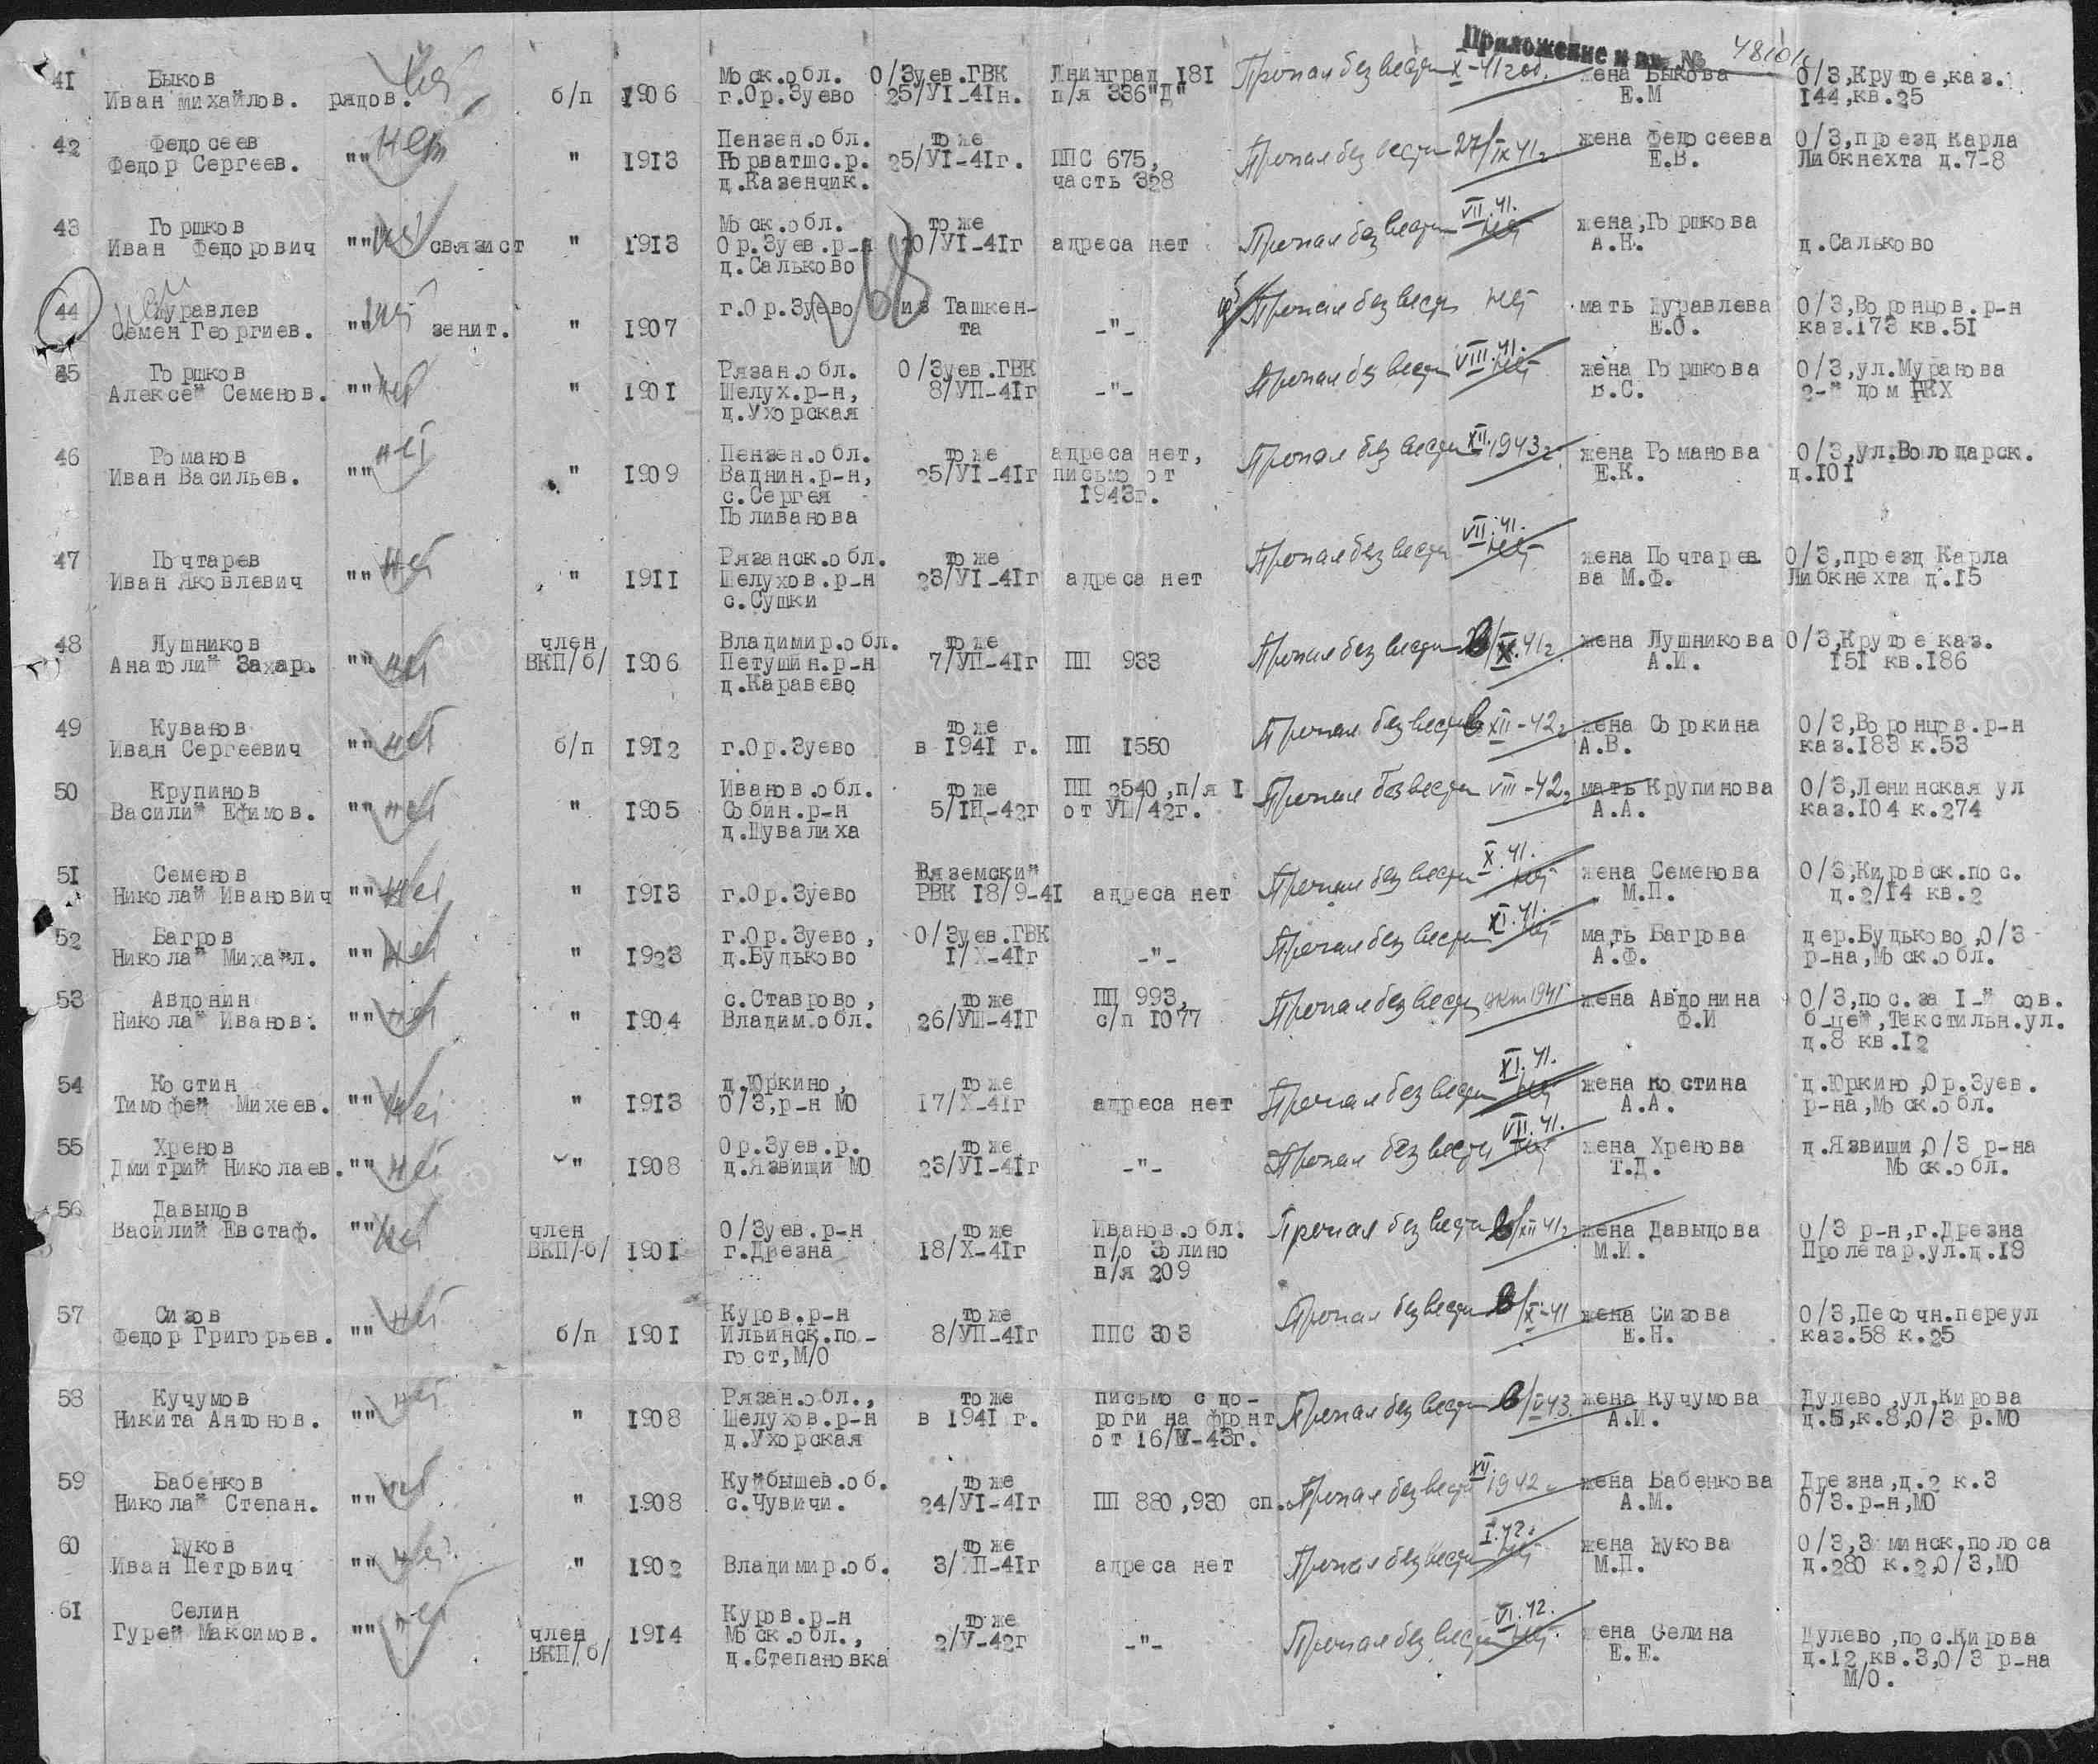 Приложение к вх. № 48101с
41 Быков Моск.обл. О/Зуев.ГВК Лнинград 181 Пропал без вести X-41 года. жена Быкова О/З,Крутое,каз.
Иван Михайлов. рядов. нет б/п 1906 г.Ор.Зуево 25/VI-41н. п/я 336"Д" Е.М 144,кв.25
42 Федосеев Пензен.обл. то же жена Федосеева О/З,проезд Карла
Федор Сергеев. "" нет " 1913 25/VI-41г. ППС 675, Пропал без вести 27/IX 41г Е.В. Либкнехта д.7-8
д.Казенчик. часть 328
43 Горшков Моск.обл. то же VII.41. жена,Горшкова
Иван Федорович "" нет связист " 1913 Ор.Зуев.р-н /VI-41г адреса нет Пропал без вести нет А.Н. д.Сальково
д.Сальково
44 нет Журавлев г.Ор.Зуево из Ташкен- Пропал без вести нет мать Журавлева О/З,Воронцов.р-н
Семен Георгиев. "" нет зенит. " 1907 та -"- Е.О. каз.173 кв.51
45 Горшков Рязан.обл. О/Зуев.ГВК VIII.41. жена Горшкова О/З,ул.Муранова
Алексей Семенов. "" нет " 1901 Шелух.р-н, 8/УП-41г -"- Пропал без вести нет В.С. 2-й дом НКХ
д.Ухорская
46 Романов Пензен.обл. то же адреса нет, Пропал без вести XII.1943г. жена Романова О/З,ул.Володарск.
Иван Васильев. "" нет " 1909 Вадиин.р-н, 25/VI-41г письмо от Е.К. д.101
с.Сергея 1943г.
Поливанова
47 Почтарев Рязанск.обл. то же VII.41. жена Почтарев О/З,проезд Карла
Иван Яковлевич "" нет " 1911 Шелухов.р-н 23/VI-41г адреса нет Пропал без вести нет ва М.Ф. Либкнехта д.15
с.Сушки
48 Лушников член Владимир.обл. то же жена Лушникова О/З,Крутое каз.
Анатолий Захар. "" нет ВКП/б/ 1906 Петушин.р-н 7/УП-41г ПП 933 Пропал без вести в/X.41г. А.И. 151 кв.186
д.Каравево
49 Куванов то же Пропал без вести в XII-42г жена Сорокина О/З,Воронцов.р-н
Иван Сергеевич "" нет б/п 1912 г.Ор.Зуево в 1941 г. ПП 1550 А.В. каз.183 к.53
50 Крупинов Иванов.обл. то же ПП 2540,п/я I Пропал без вести VIII-42г мать Крупинова О/З,Ленинская ул
Василий Ефимов. "" нет " 1905 Собин.р-н 5/Ш-42г от УШ/42г. А.А. каз.104 к.274
д.Шувалиха
51 Семенов Вяземский X.41. жена Семенова О/З,Кировск.пос.
Николай Иванович "" нет " 1913 г.Ор.Зуево РВК 18/9-41 адреса нет Пропал без вести нет М.П. д.2/14 кв.2
52 Багров г.Ор.Зуево, О/Зуев.ГВК XI.41. мать Багрова дер.Будьково,О/З
Николай Михайл. "" нет " 1923 д.Будьково 1/X-41г -"- Пропал без вести нет А.Ф. р-на,Моск.обл.
53 Авдонин с.Ставрово, то же ПП 993, Пропал без вести окт 1941 жена Авдонина О/З,пос.за 1-й сов.
Николай Иванов. "" нет " 1904 Владим.обл. 26/УШ-41Г с/п 1077 Ф.И б-цей,Текстильн.ул.
д.8 кв.12
54 Костин д.Юркино, то же XI.41. жена Костина д.Юркино,Ор.Зуев.
Тимофей Михеев. "" нет " 1913 О/З,р-н МО 17/X-41г адреса нет Пропал без вести нет А.А. р-на,Моск.обл.
55 Хренов Ор.Зуев.р. то же VII.41. жена Хренова д.Язвищи,О/З р-на
Дмитрий Николаев. "" нет " 1908 д.Язвищи МО 23/VI-41г -"- Пропал без вести нет Т.Д. Моск.обл.
56 Давыдов
Василий Евстаф. "" нет член О/Зуев.р-н то же Иванов.обл. Пропал без вести в/XII 41г жена Давыдова О/З р-н,г.Дрезна
ВКП/б/ 1901 г.Дрезна 18/X-41г п/о Золино М.И. Пролетар.ул.д.19
п/я 209
57 Сизов Куров.р-н то же Пропал без вести в/X-41 жена Сизова О/З,Песочн.переул
Федор Григорьев. "" нет б/п 1901 Ильинск.по- 8/УП-41г ППС 303 Е.Н. каз.58 к.25
гост,М/О
58 Кучумов Рязан.обл., то же письмо с до- жена Кучумова Дулево,ул.Кирова
Никита Антонов. "" нет " 1908 Шелухов.р-н в 1941 г. роги на фронт Пропал без вести в/V43 А.И. д.5,к.8,О/З р.МО
д.Ухорская от 16/ -43г.
59 Бабенков Куйбышев.об. то же XII жена Бабенкова Дрезна,д.2 к.3
Николай Степан. "" нет " 1908 с.Чувичи. 24/VI-41г ПП 880,930 сп. Пропал без вести 1942г А.М. О/З.р-н,МО
60 Жуков то же I.42. жена Жукова О/З,Зиминск.полоса
Иван Петрович "" нет " 1902 Владимир.об. 3/ П-41г адреса нет Пропал без вести нет М.П. д.280 к.2,О/З,МО
61 Селин Куров.р-н VI.42.
Гурей Максимов. "" нет член 1914 Моск.обл., то же 2/V-42г -"- Пропал без вести нет. жена Селина Дулево,пос.Кирова
ВКП/б/ д.Степановка Е.Е. д.12 кв.3,О/З р-на
М/О.